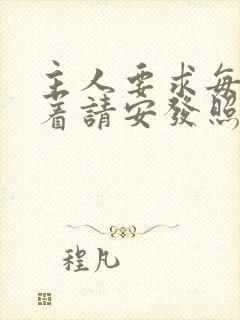 主人要求每
着請安發照
程凡